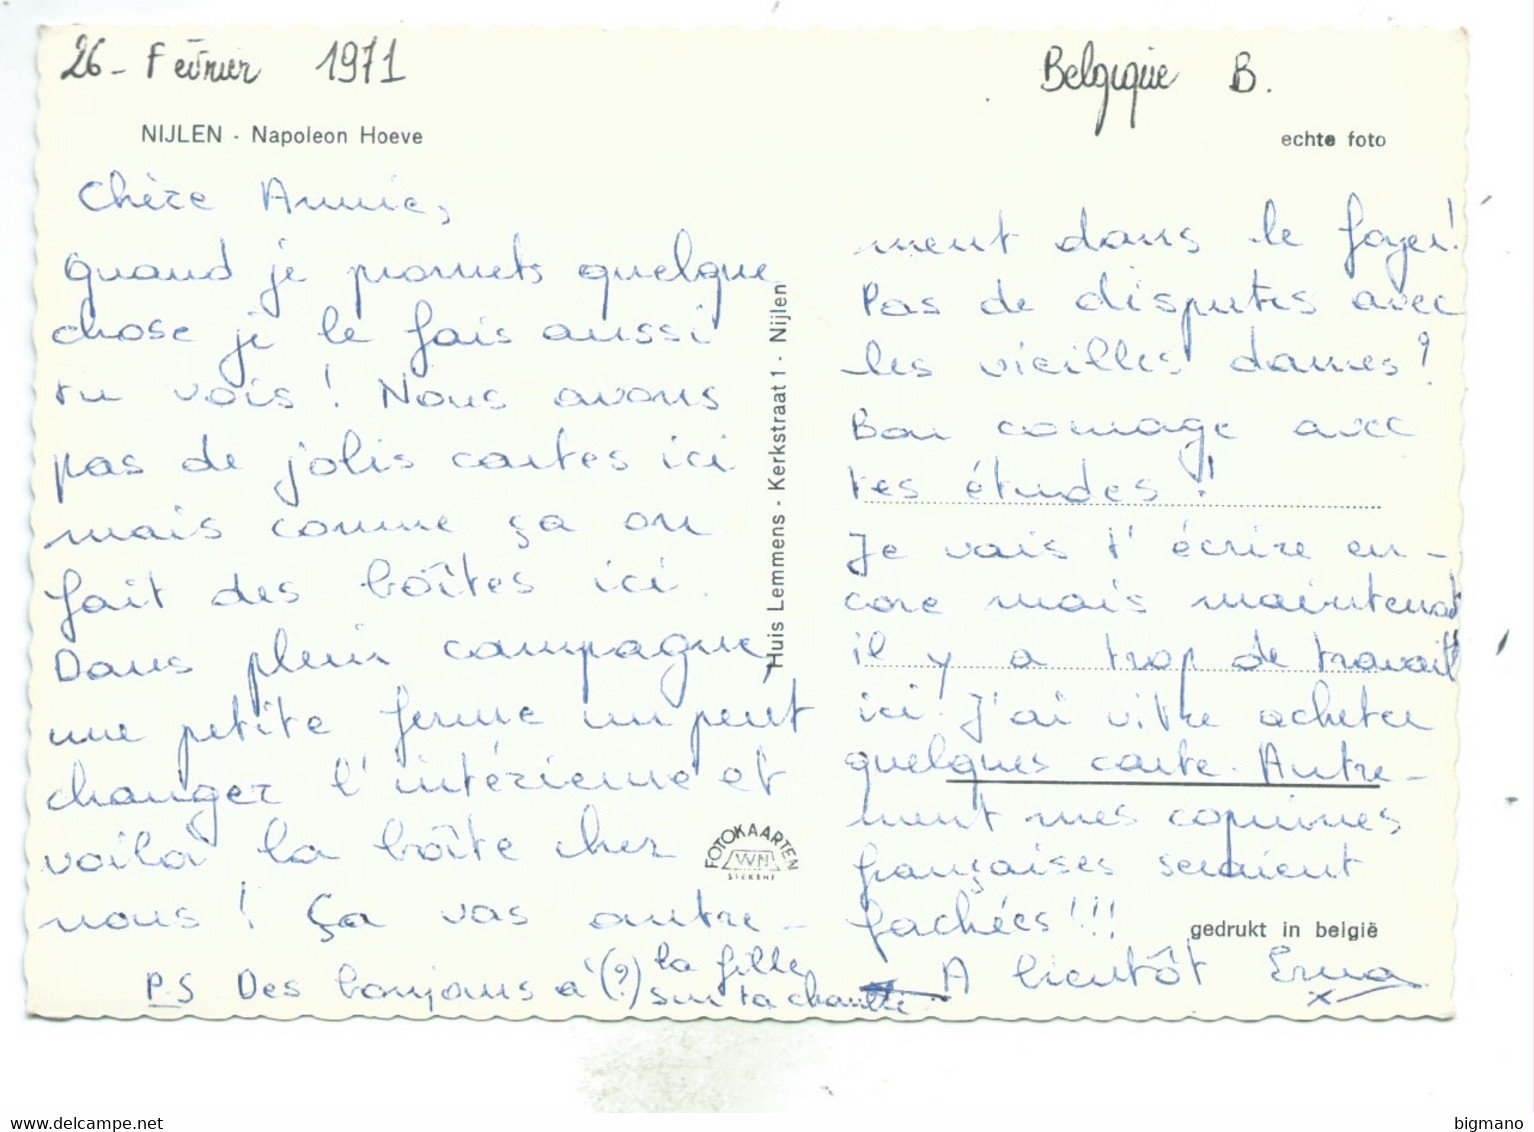 26 - Février 1971
Belgique B.
NIJLEN - Napoleon Hoeve
echte foto
Chère Annie,
quand je promets quelque
chose je le fais aussi
tu vois ! Nous avons
pas de jolis cartes ici
mais comme ça on
fait des boîtes ici.
Dans plein campagne,
une petite ferme un peut
changer l'intérieure et
voilà la boîte chez
nous ! Ça vas autre-
P.S Des bonjours à (?) la fille
sur ta chambre
Huis Lemmens - Kerkstraat 1 - Nijlen
FOTOKAARTEN
WN
ment dans le foyer!
Pas de disputes avec
les vieilles dames ?
Bon courage avec
tes études !
Je vais t'écrire en-
core mais maintenant
il y a trop de travail
ici. J'ai vitre acheter
quelques carte. Autre-
ment mes copines
françaises seraient
fachées !!!
gedrukt in belgië
A bientôt Erna
x
https://www.delcampe.net
bigmano